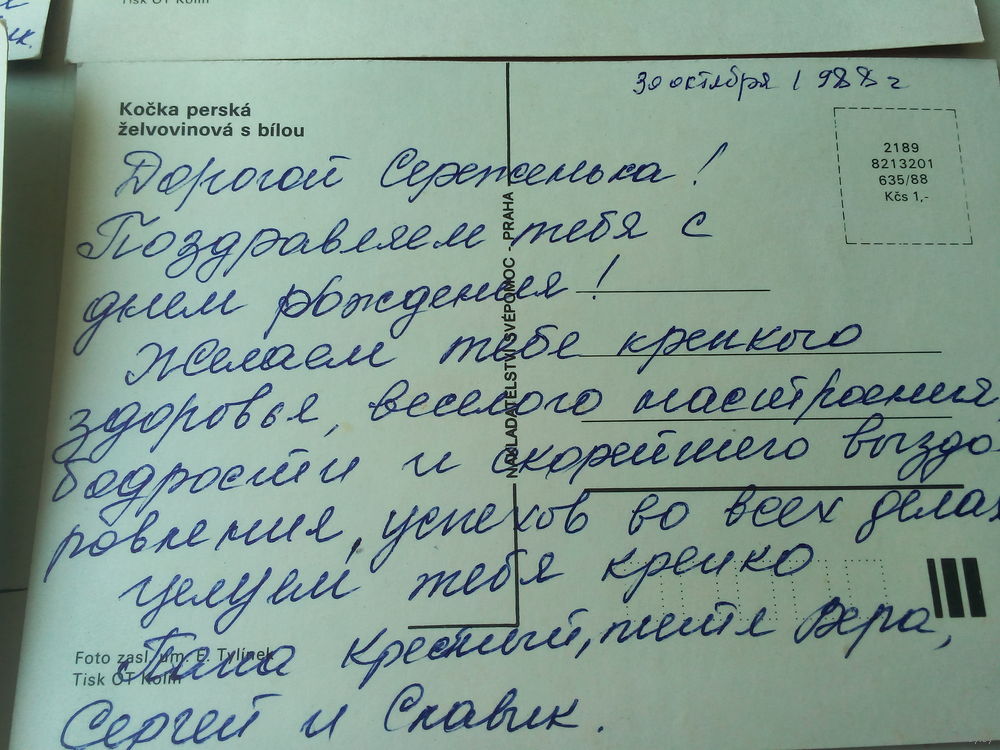 Tisk OT Kolín
30 октября 1988 г
Kočka perská
želvovinová s bílou
2189
8213201
635/88
Kčs 1,-
Дорогой Сереженька!
Поздравляем тебя с
днем рождения!
Желаем тебе крепкого
здоровья, веселого настроения
бодрости и скорейшего выздо
ровления, успехов во всех делах
целуем тебя крепко
Крестный, тетя Вера,
Сергей и Славик.
NAKLADATELSTVÍ SVÉPOMOC - PRAHA
Foto zasl. um. E. Tylínek
Tisk OT Kolín